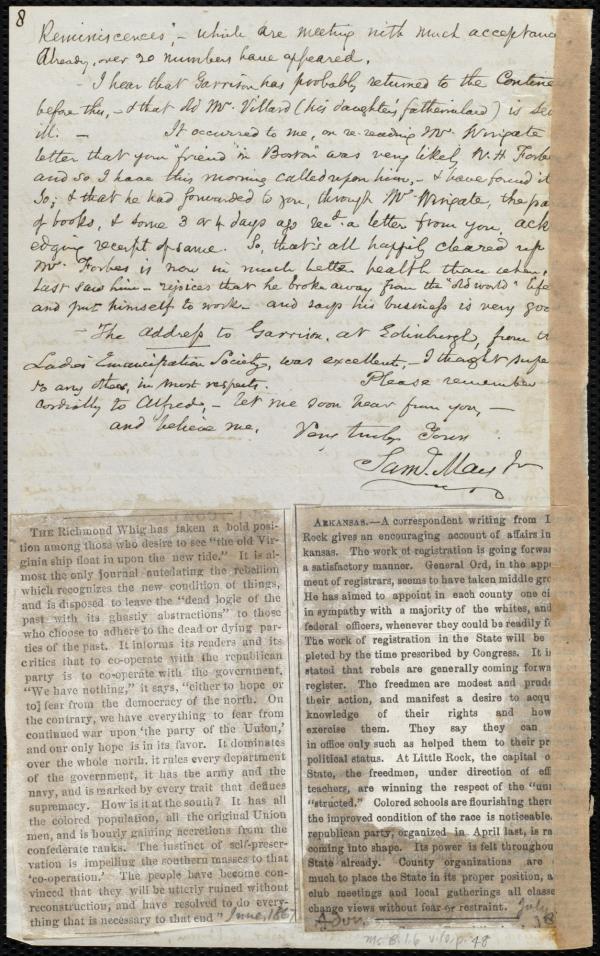 8
Reminiscences", – which are meeting with much acceptanc
Already, over 20 numbers have appeared.
I hear that Garrison has probably returned to the Contine
before this, – & that old Mr. Villard (his daughter's fatherinlaw) is
ill. – It occurred to me, on re-reading Mr. Wingate
letter that your "friend in Boston" was very likely W. H. Forbe
and so I have this morning called upon him, – & have found it
so; & that he had forwarded to you, through Mr. Wingate, the pa
of books, & some 3 or 4 days ago recd. a letter from you, ack
edging receipt of same. So, that's all happily cleared up
Mr. Forbes is now in much better health than when
last saw him – rejoices that he broke away from the "old world" life
and put himself to work – and says his business is very goo
– The address to Garrison, at Edinburgh, from th
Ladies' Emancipation Society, was excellent, – I thought supe
to any other, in most respects. Please remember
cordially to Alfred, – let me soon hear from you, –
and believe me, Very truly Yours
Saml. May Jr
THE Richmond Whig has taken a bold posi-
tion among those who desire to see "the old Vir-
ginia ship float in upon the new tide." It is al-
most the only journal antedating the rebellion
which recognizes the new condition of things,
and is disposed to leave the "dead logic of the
past with its ghastly abstractions" to those
who choose to adhere to the dead or dying par-
ties of the past. It informs its readers and its
critics that to co-operate with the republican
party is to co-operate with the government.
"We have nothing," it says, "either to hope or
to] fear from the democracy of the north. On
the contrary, we have everything to fear from
continued war upon 'the party of the Union,'
and our only hope is in its favor. It dominates
over the whole north, it rules every department
of the government, it has the army and the
navy, and is marked by every trait that defines
supremacy. How is it at the south? It has all
the colored population, all the original Union
men, and is hourly gaining accretions from the
confederate ranks. The instinct of self-preser-
vation is impelling the southern masses to that
'co-operation.' The people have become con-
vinced that they will be utterly ruined without
reconstruction, and have resolved to do every-
thing that is necessary to that end" June, 1867
ARKANSAS.—A correspondent writing from L
Rock gives an encouraging account of affairs in
kansas. The work of registration is going forwar
a satisfactory manner. General Ord, in the appo
ment of registrars, seems to have taken middle gro
He has aimed to appoint in each county one ci
in sympathy with a majority of the whites, and
federal officers, whenever they could be readily fo
The work of registration in the State will be
pleted by the time prescribed by Congress. It is
stated that rebels are generally coming forwa
register. The freedmen are modest and prude
their action, and manifest a desire to acqu
knowledge of their rights and how
exercise them. They say they can
in office only such as helped them to their pr
political status. At Little Rock, the capital o
State, the freedmen, under direction of effi
teachers, are winning the respect of the "un
"structed." Colored schools are flourishing there
the improved condition of the race is noticeable.
republican party, organized in April last, is ra
coming into shape. Its power is felt throughou
State already. County organizations are
much to place the State in its proper position, a
club meetings and local gatherings all classe
change views without fear or restraint. July
Adv. 18
Ms. B. 1.6 v.12, p. 48